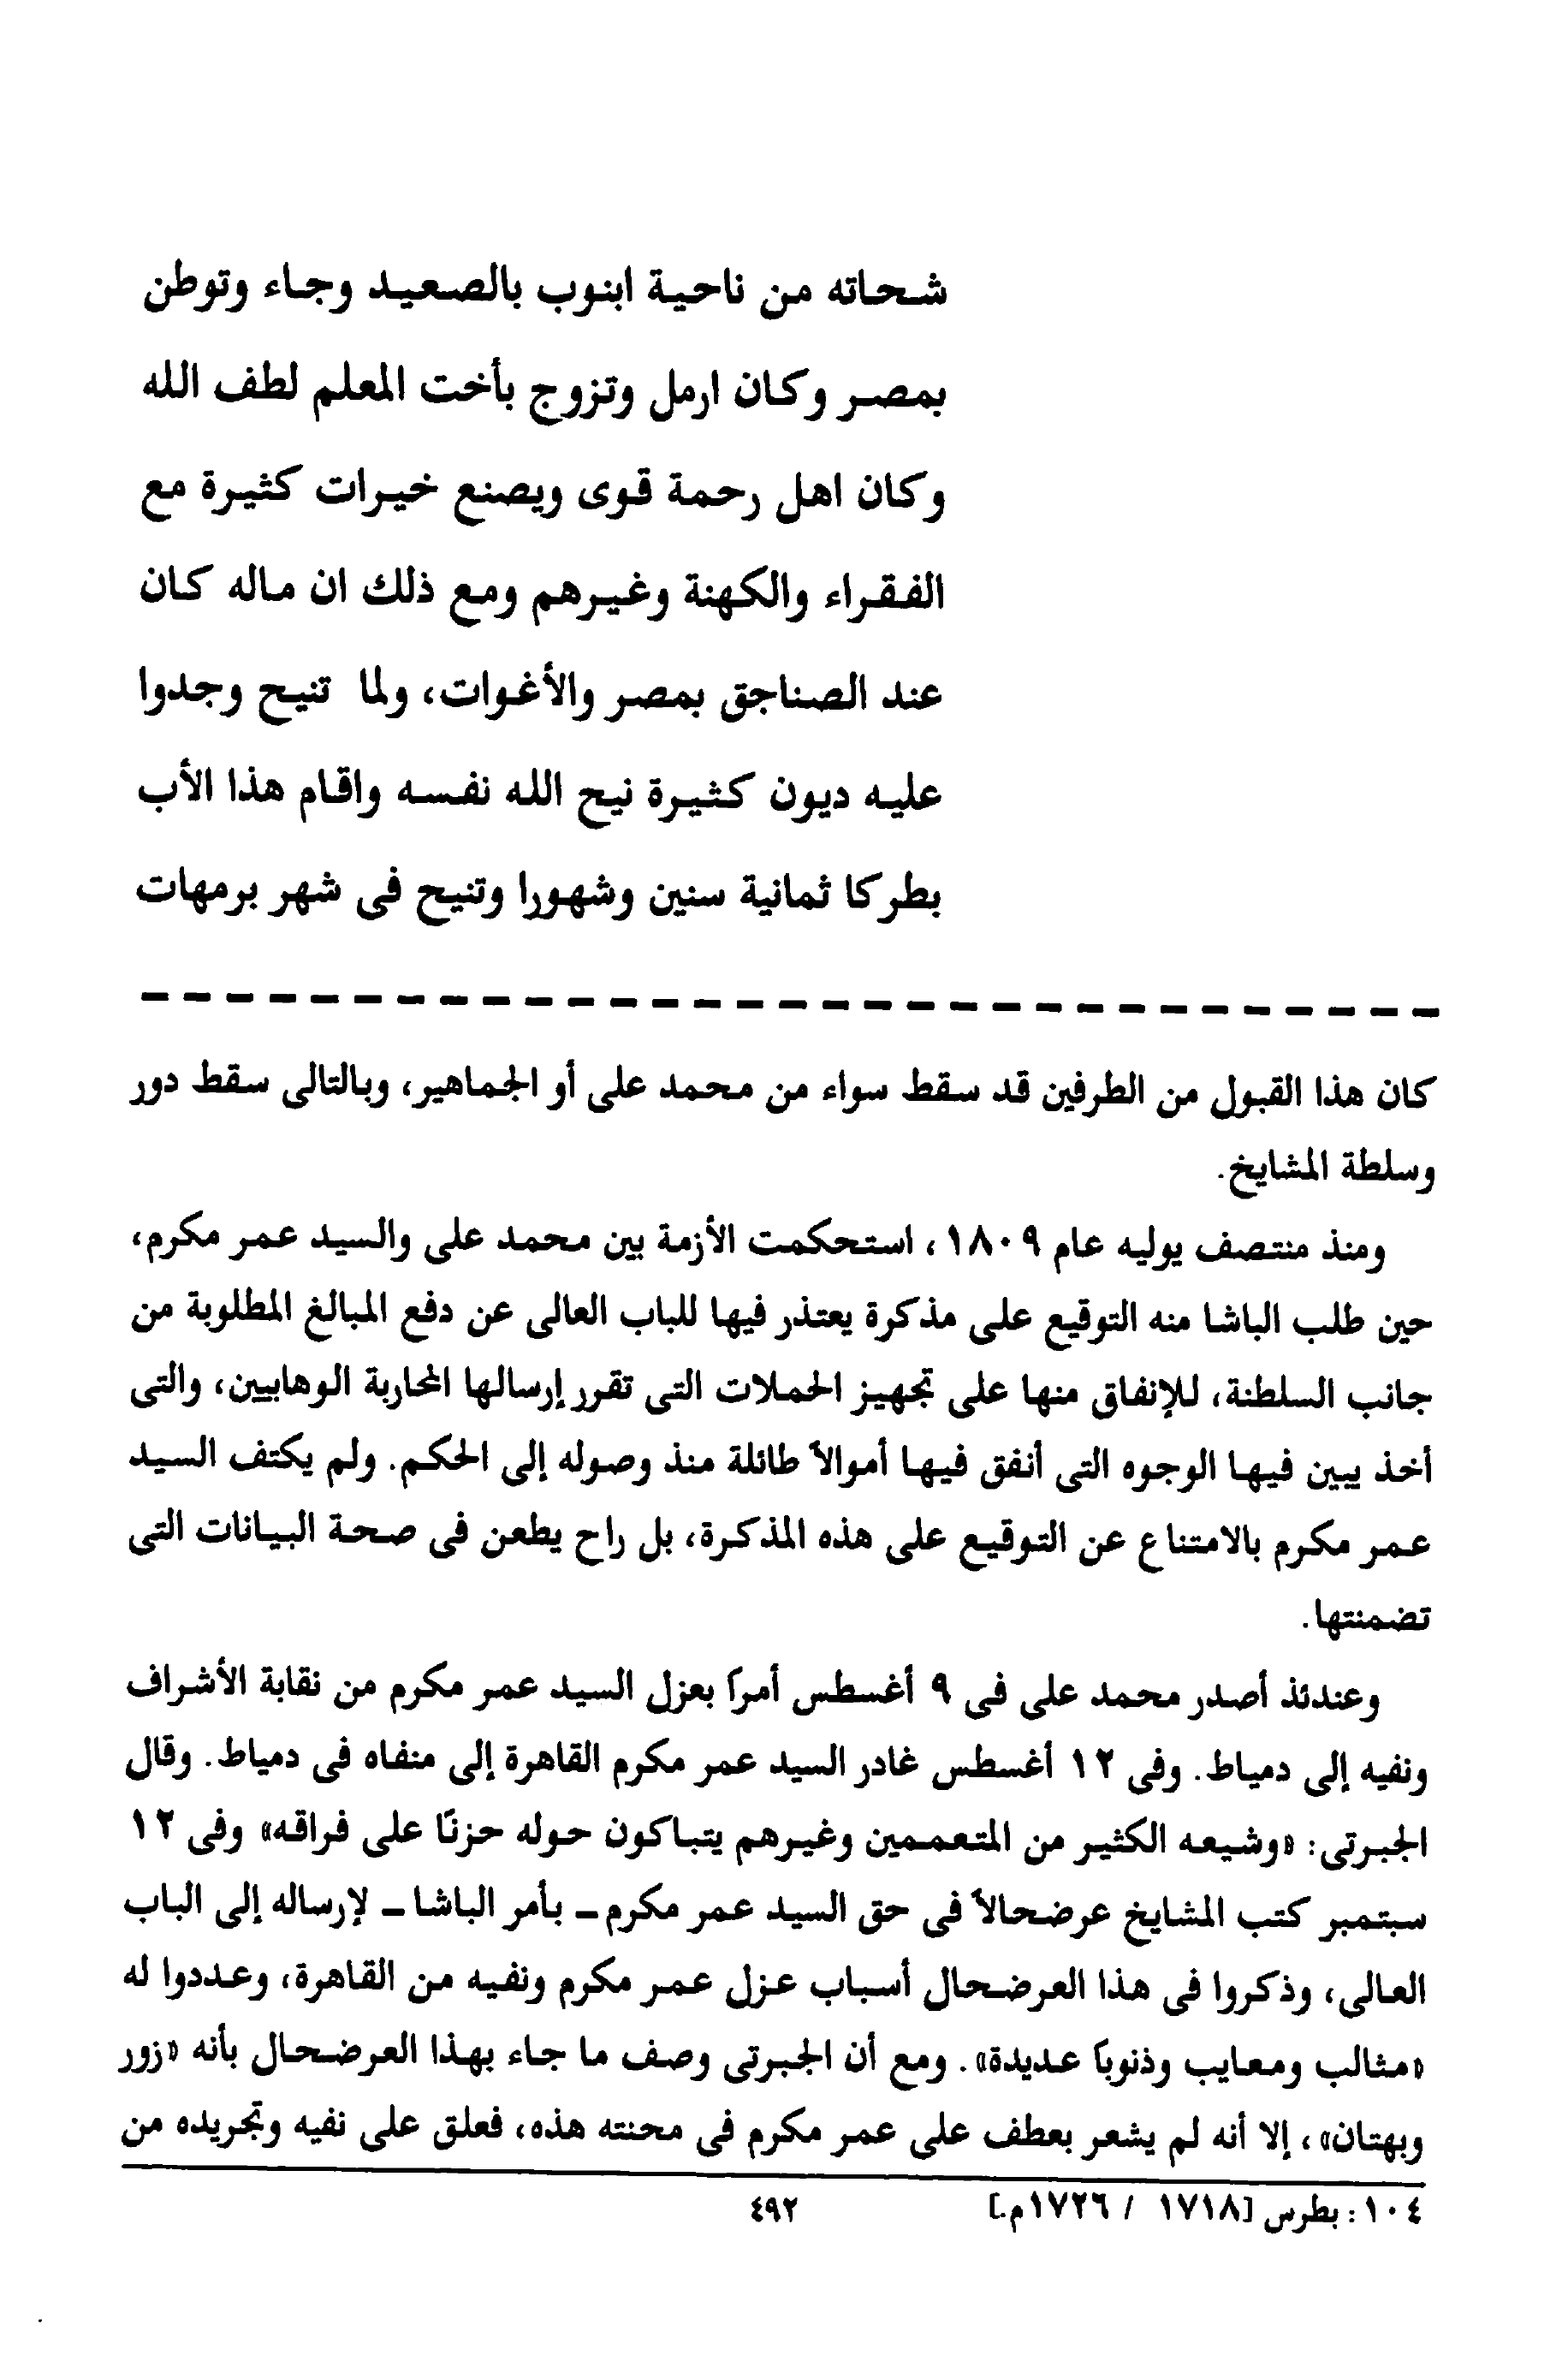 شحاته من ناحية ابنوب بالصعيد وجاء وتوطن
بمصر وكان ارمل وتزوج بأخت المعلم لطف الله
وكان اهل رحمة قوى ويصنع خيرات كثيرة مع
الفقراء والكهنة وغيرهم ومع ذلك ان ماله كان
عند الصناجق بمصر والأغوات، ولما تنيح وجدوا
عليه ديون كثيرة نيح الله نفسه واقام هذا الأب
بطركا ثمانية سنين وشهورا وتنيح فى شهر برمهات
كان هذا القبول من الطرفين قد سقط سواء من محمد على أو الجماهير، وبالتالى سقط دور
وسلطة المشايخ.
ومنذ منتصف يوليه عام ١٨٠٩، استحكمت الأزمة بين محمد على والسيد عمر مكرم،
حين طلب الباشا منه التوقيع على مذكرة يعتذر فيها للباب العالى عن دفع المبالغ المطلوبة من
جانب السلطنة، للإنفاق منها على تجهيز الحملات التى تقرر إرسالها لمحاربة الوهابيين، والتى
أخذ يبين فيها الوجوه التى أنفق فيها أموالاً طائلة منذ وصوله إلى الحكم. ولم يكتف السيد
عمر مكرم بالامتناع عن التوقيع على هذه المذكرة، بل راح يطعن فى صحة البيانات التى
تضمنتها.
وعندئذ أصدر محمد على فى ٩ أغسطس أمراً بعزل السيد عمر مكرم من نقابة الأشراف
ونفيه إلى دمياط. وفى ١٢ أغسطس غادر السيد عمر مكرم القاهرة إلى منفاه فى دمياط. وقال
الجبرتى: «وشيعه الكثير من المتعممين وغيرهم يتباكون حوله حزنًا على فراقه» وفى ١٢
سبتمبر كتب المشايخ عرضحالاً فى حق السيد عمر مكرم ـ بأمر الباشا ـ لإرساله إلى الباب
العالى، وذكروا فى هذا العرضحال أسباب عزل عمر مكرم ونفيه من القاهرة، وعددوا له
«مثالب ومعايب وذنوباً عديدة». ومع أن الجبرتى وصف ما جاء بهذا العرضحال بأنه «زور
وبهتان»، إلا أنه لم يشعر بعطف على عمر مكرم فى محنته هذه، فعلق على نفيه وتجريده من
١٠٤: بطرس [١٧١٨ / ١٧٢٦م.] ٤٩٢